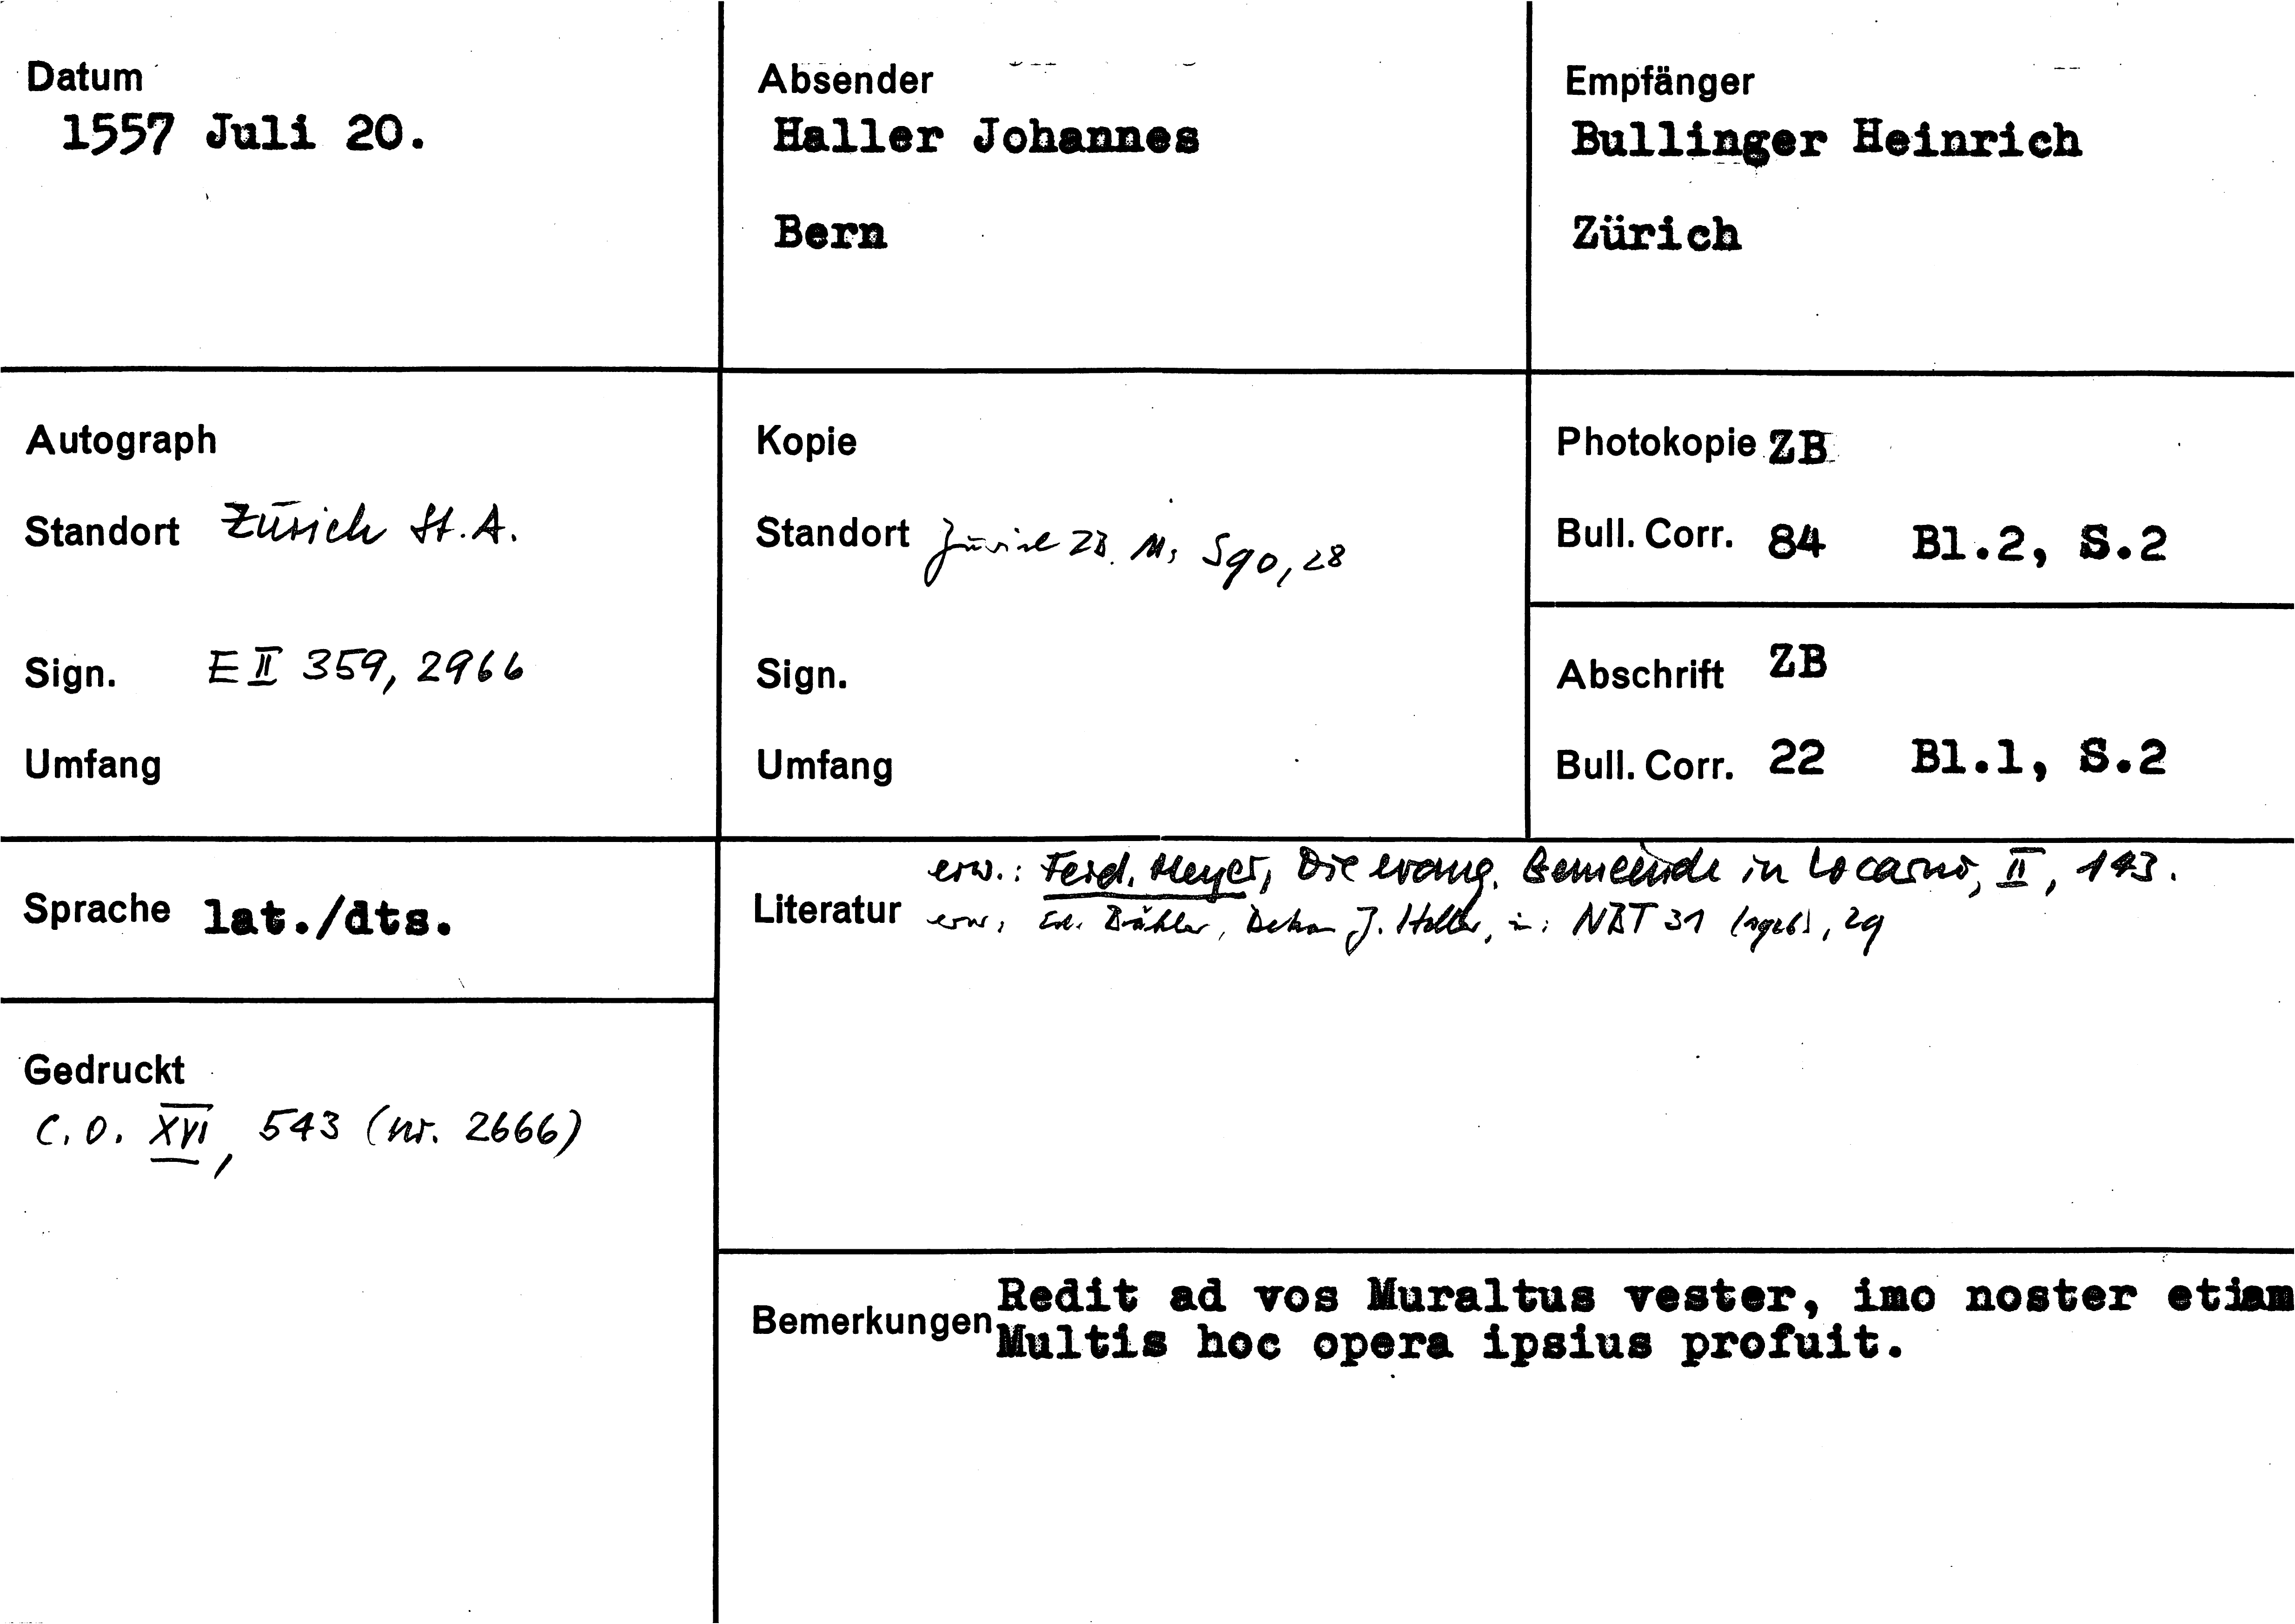 Datum
1557 Juli 20.
Absender
Haller Johannes
Bern
Empfänger
Bullinger Heinrich
Zürich
Autograph
Standort Zürich St.A.
Sign. E II 359, 2966
Umfang
Kopie
Standort Zürich ZB. Ms S 90, 28
Sign.
Umfang
Photokopie ZB
Bull. Corr. 84 Bl.2, S.2
Abschrift ZB
Bull. Corr. 22 Bl.1, S.2
Sprache lat./dts.
erw.: Ferd. Meyer, Die evang. Gemeinde in Locarno, II, 143.
Literatur erw. Ed. Bähler, Dekan J. Haller, in: NBT 31 (1926), 29
Gedruckt
C.O. XVI, 543 (nr. 2666)
Bemerkungen Redit ad vos Muraltus vester, imo noster etiam
Multis hoc opera ipsius profuit.